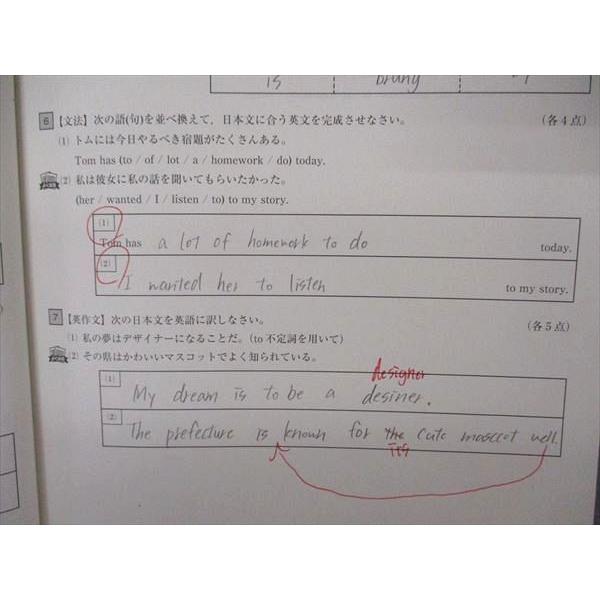 is
6【文法】次の語(句)を並べ換えて，日本文に合う英文を完成させなさい。 (各4点)
(1) トムには今日やるべき宿題がたくさんある。
Tom has (to / of / lot / a / homework / do) today.
(2) 私は彼女に私の話を聞いてもらいたかった。
(her / wanted / I / listen / to) to my story.
(1)
Tom has a lot of homework to do today.
(2)
I wanted her to listen to my story.
7【英作文】次の日本文を英語に訳しなさい。 (各5点)
(1) 私の夢はデザイナーになることだ。(to 不定詞を用いて)
(2) その県はかわいいマスコットでよく知られている。
designer
(1) My dream is to be a desiner.
(2) The prefecture is known for the cute masccot well.
its